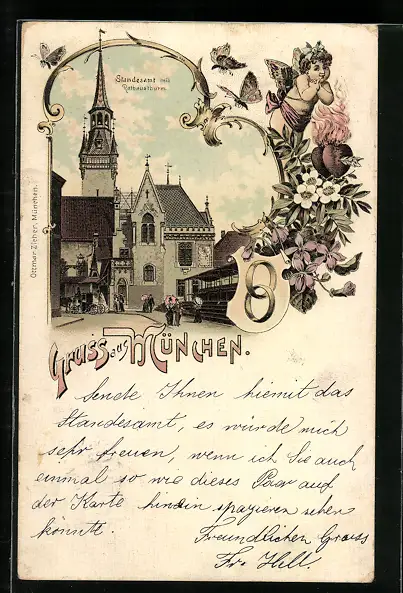 Standesamt mit
Rathausthurm.
Ottmar Zieher, München.
Gruss aus München.
Sende Ihnen hiemit das
Standesamt, es würde mich
sehr freuen, wenn ich Sie auch
einmal so wie dieses Paar auf
der Karte hinein spazieren sehen
könnte.
Freundlichen Gruss
Fr. Hell.